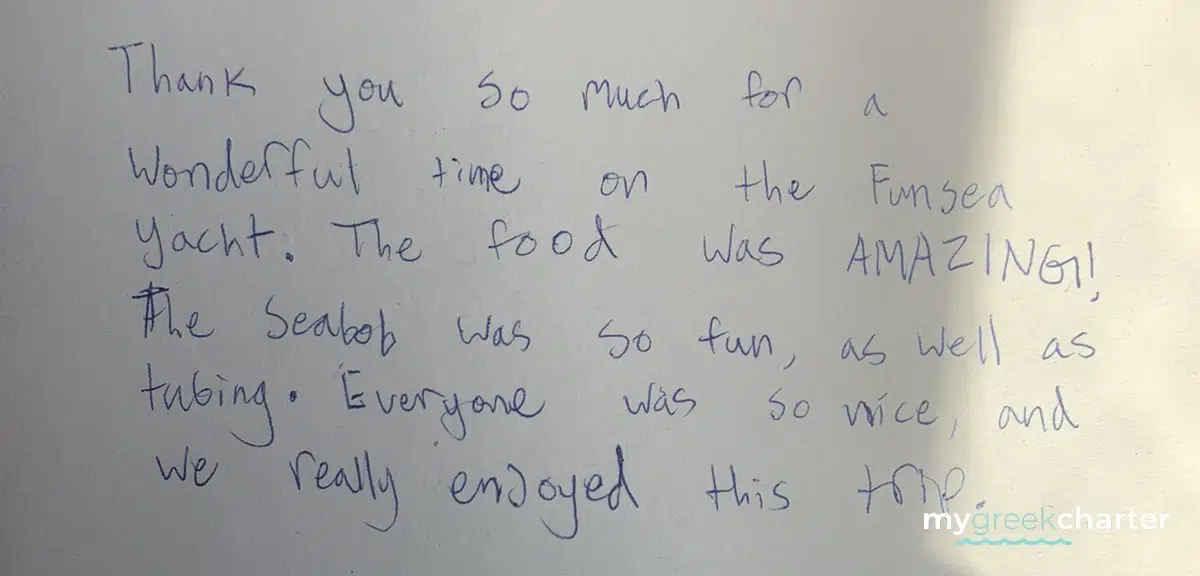 Thank you so much for a
Wonderful time on the Funsea
yacht. The food was AMAZING!
The Seabob was so fun, as well as
tubing. Everyone was so nice, and
we really enjoyed this trip.
mygreekcharter